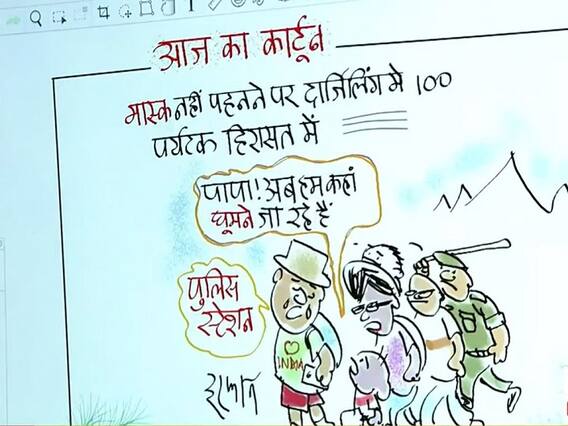 आज का कार्टून
मास्क नहीं पहनने पर दार्जिलिंग मे 100
पर्यटक हिरासत में
पापा! अब हम कहां
घूमने जा रहे हैं
पुलिस
स्टेशन
INDIA